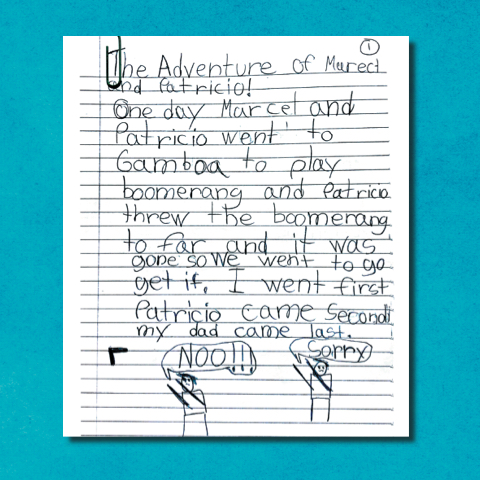 1
The Adventure of Marect
and Patricio!
One day Marcel and
Patricio went to
Gamboa to play
boomerang and Patricio
threw the boomerang
to far and it was
gone so we went to go
get it. I went first
Patricio came Second
my dad came last.
NOO!!!
Sorry